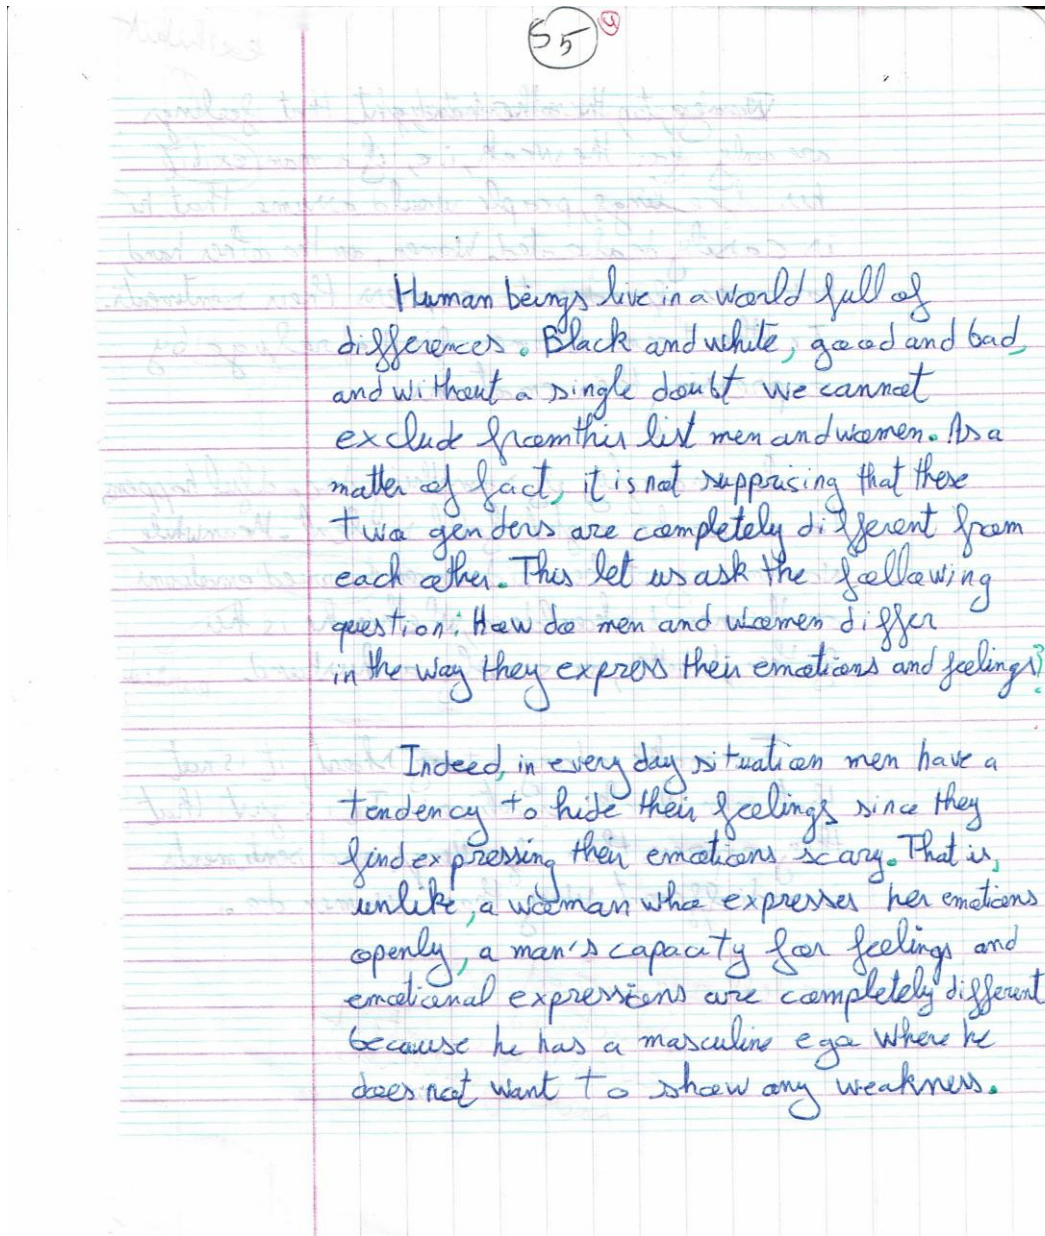 S5
4
Human beings live in a world full of
differences. Black and white, good and bad,
and without a single doubt we cannot
exclude from this list men and women. As a
matter of fact, it is not supprising that these
two genders are completely different from
each other. This let us ask the following
question: How do men and women differ
in the way they express their emotions and feelings?
Indeed, in every day situation men have a
tendency to hide their feelings since they
find expressing their emotions scary. That is,
unlike, a woman who expresses her emotions
openly, a man's capacity for feelings and
emotional expressions are completely different
because he has a masculine ego where he
does not want to show any weakness.